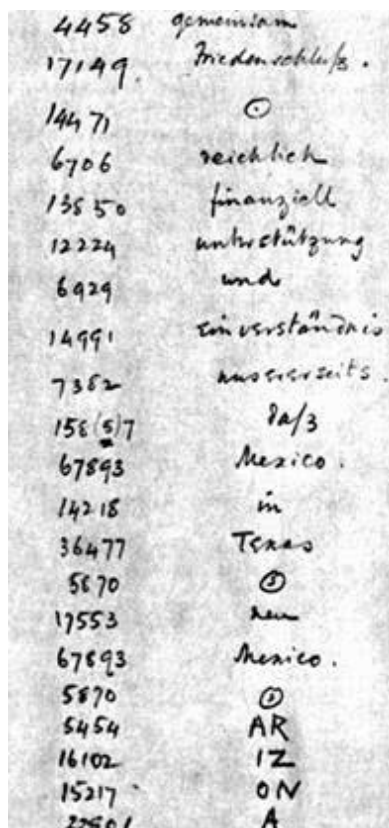 4458 gemeinsam
17149 Friedenschluß.
14471 ⊙
6706 reichlich
13850 finanziell
12224 unterstützung
6929 und
14991 einverständnis
7382 unsererseits.
158(5)7 daß
67893 Mexico.
14218 in
36477 Texas
5870
17553 neu
67893 Mexico.
5870
5454 AR
16102 IZ
15217 ON
22801 A